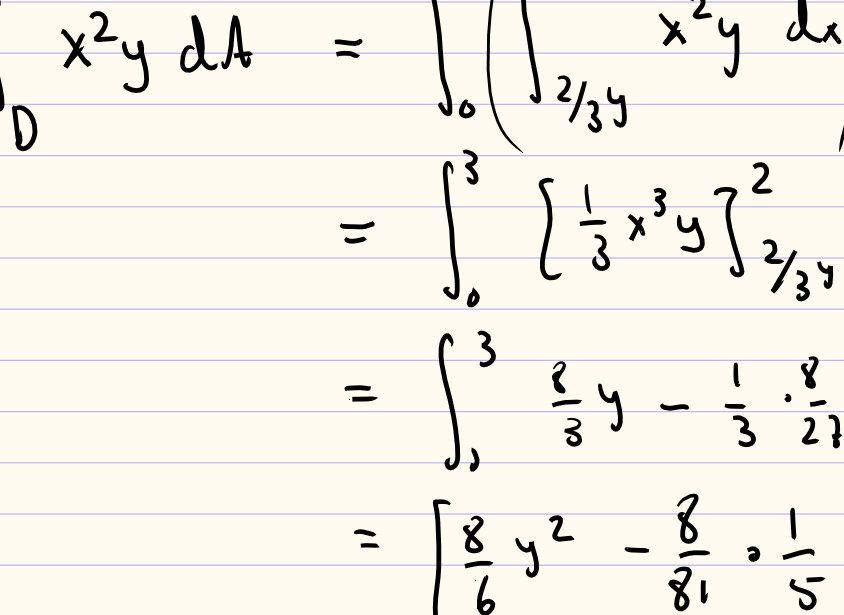 ∫_D x²y dA = ∫_0 ( ∫_{2/3y} x²y dx )
= ∫_0^3 [ 1/3 x³y ]_{2/3y}^2
= ∫_0^3 8/3 y - 1/3 · 8/27
= [ 8/6 y² - 8/81 · 1/5